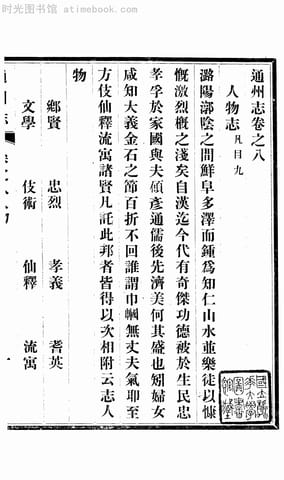 时光图书馆 atimebook.com
通州志卷之八
人物志 凡目九
潞陽漷陰之間鮮阜多澤而鍾爲知仁山水並樂徒以慷
慨激烈槪之淺矣自漢迄今代有奇傑功德被於生民忠
孝孚於家國與夫碩彥通儒後先濟美何其盛也矧婦女
咸知大義金石之節百折不回誰謂巾幗無丈夫氣耶至
方伎仙釋流寓諸賢凡託此邦者皆得以次相附云志人
物
鄕賢 忠烈 孝義 耆英
文學 伎術 仙釋 流寓
一
时光图书馆 atimebook.com